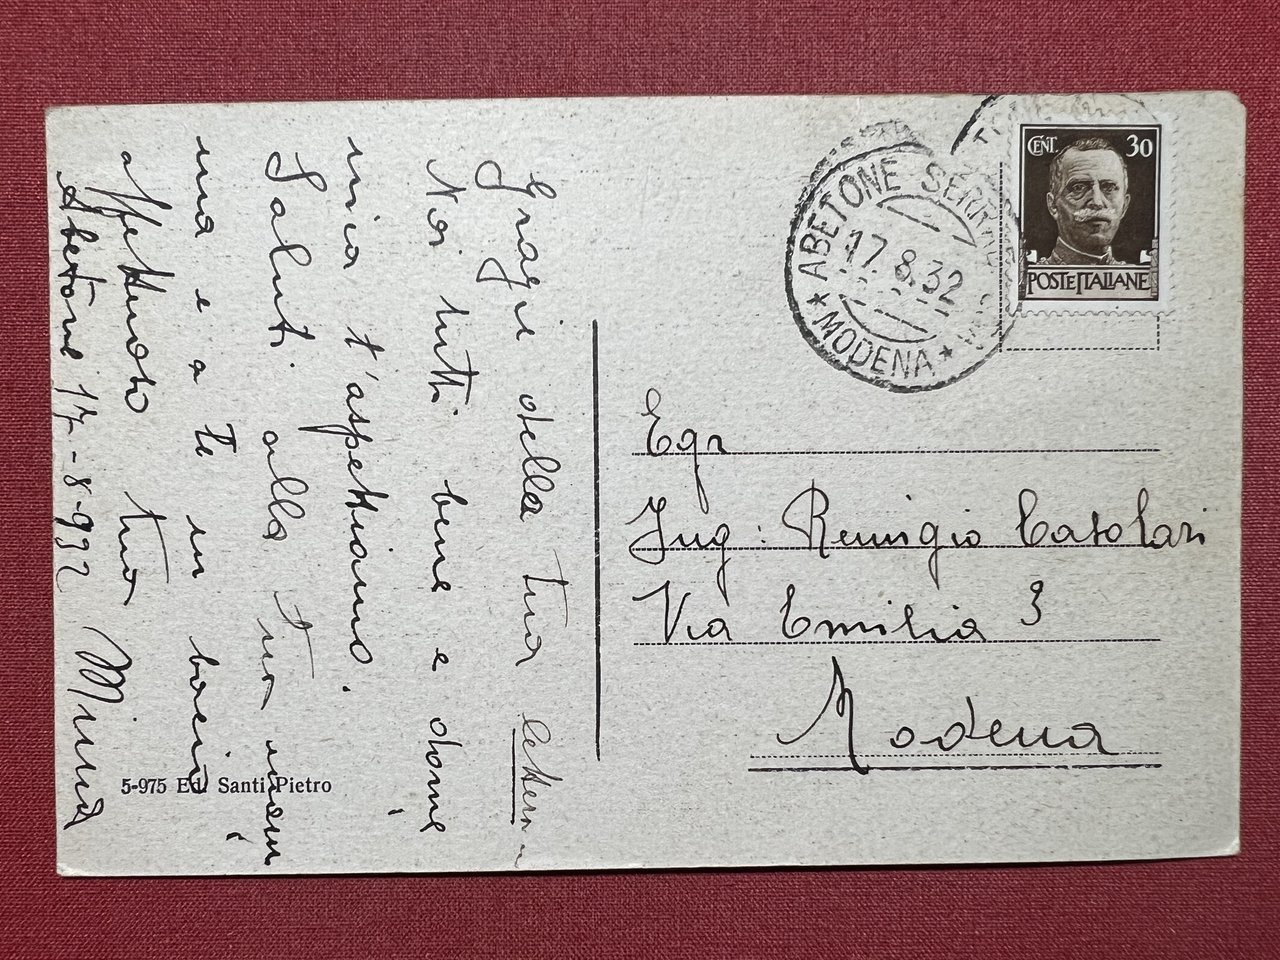 Grazie della tua lettera
Noi tutti bene e dome
nica t'aspettiamo.
Saluti alla tua mam
ma e a te un bacio
affettuoso tua Minna
Abetone 17-8-932
5-975 Ed. Santi Pietro
ABETONE SERR
17.8.32
* MODENA *
CENT. 30
POSTE ITALIANE
Egr
Ing: Remigio Casolari
Via Emilia 3
Modena